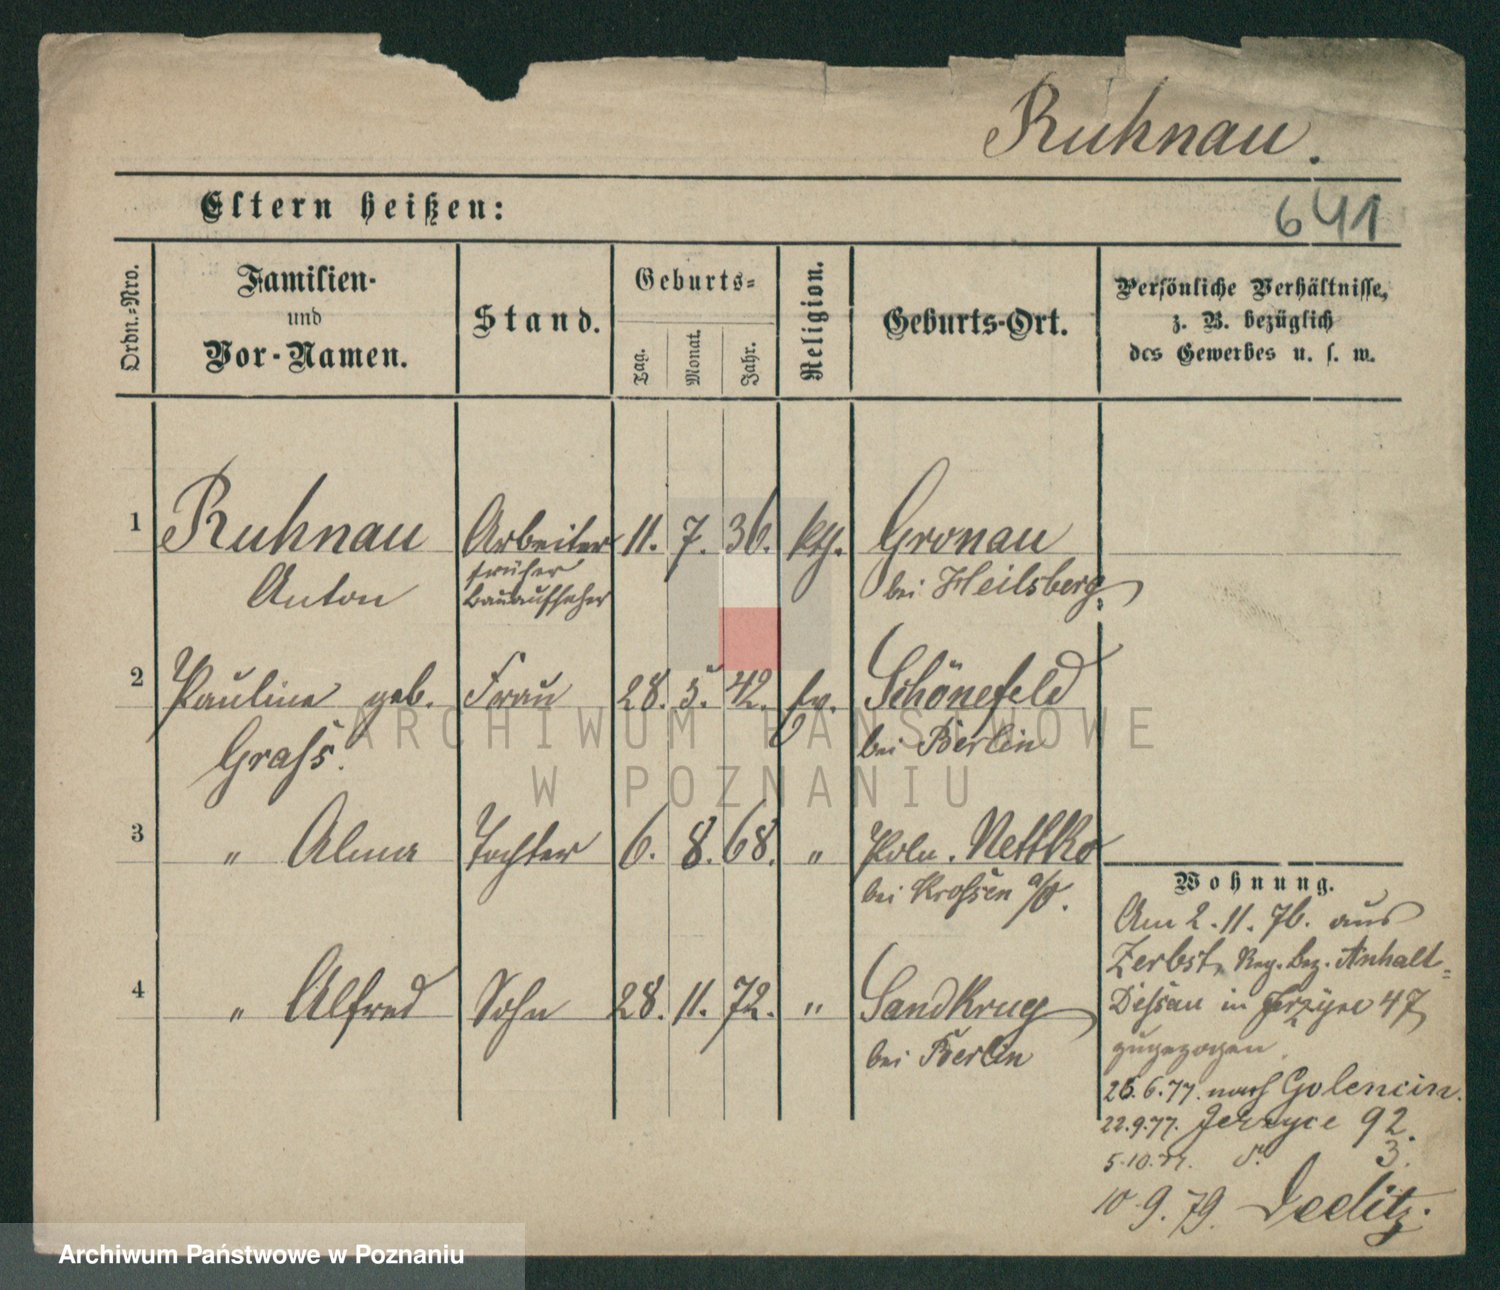 Ruhnau.
Eltern heißen:
641
Ordn.-Nro.
Familien-
und
Vor-Namen.
Stand.
Geburts-
Tag.
Monat.
Jahr.
Religion.
Geburts-Ort.
Persönliche Verhältnisse,
z. B. bezüglich
des Gewerbes u. s. w.
1 Ruhnau Arbeiter 11. 7. 36. kth. Gronau
Anton früher bei Heilsberg
Bauaufseher
2 Pauline geb. Frau 28. 5. 42. ev. Schönefeld
Grafs. bei Berlin
3 " Alma Tochter 6. 8. 68. " Poln. Nettko
bei Krofsen a/O.
4 " Alfred Sohn 28. 11. 72. " Sandkrug
bei Berlin
Wohnung.
Am 2. 11. 76. aus
Zerbst, Reg. Bez. Anhalt-
Defsau in Jerzyce 47
zugezogen.
26. 6. 77. nach Golencin.
22. 9. 77. Jerzyce 92.
5. 10. 77. d. 3.
10. 9. 79. Deelitz.
ARCHIWUM PAŃSTWOWE
W POZNANIU
Archiwum Państwowe w Poznaniu